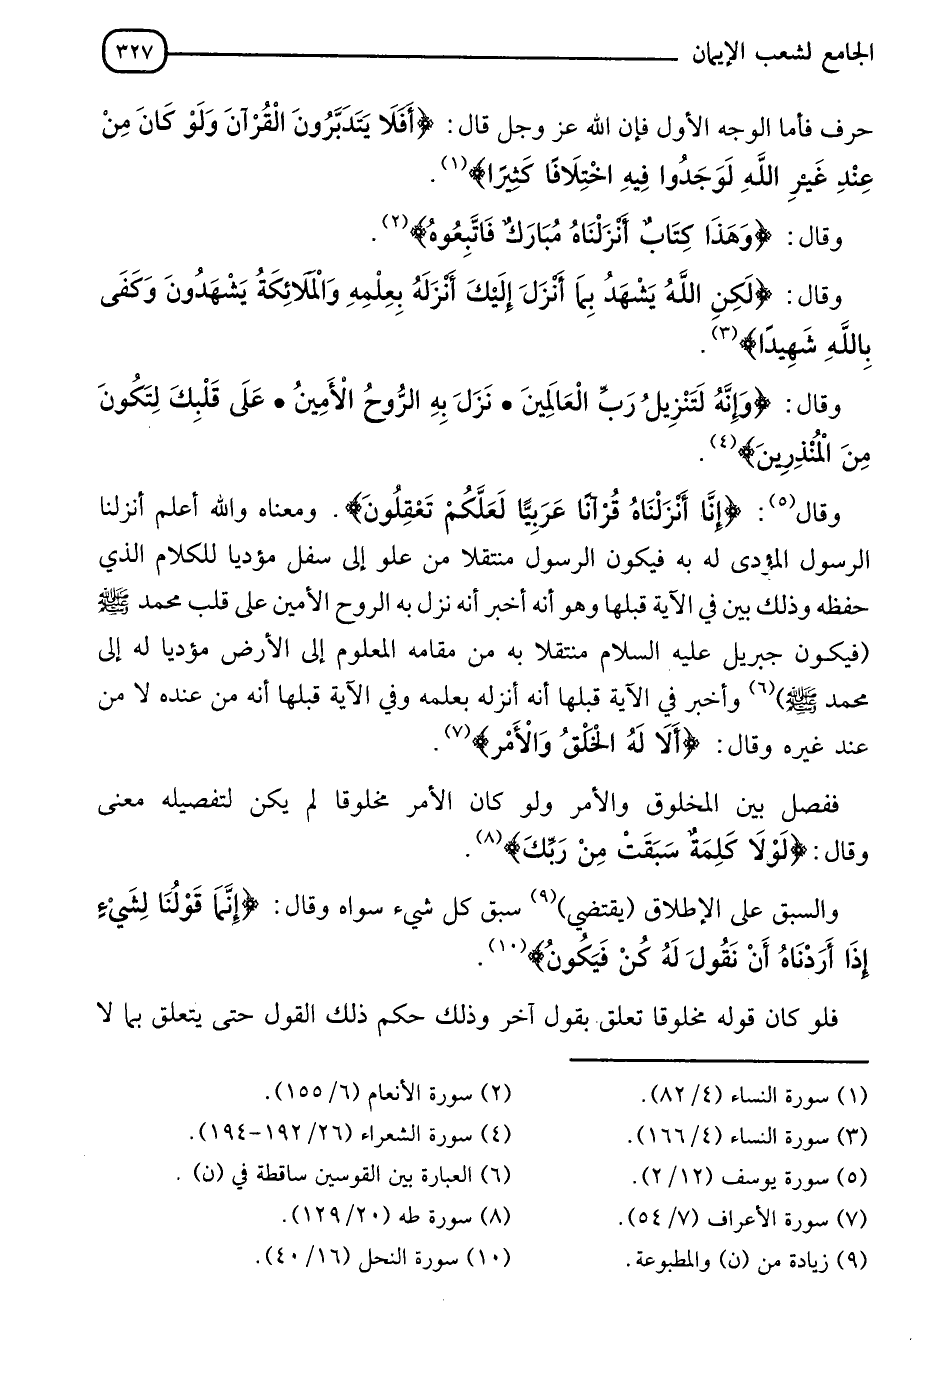 الجامع لشعب الإيمان ٣٢٧
حرف فأما الوجه الأول فإن الله عز وجل قال: ﴿أَفَلَا يَتَدَبَّرُونَ الْقُرْآنَ وَلَوْ كَانَ مِنْ
عِنْدِ غَيْرِ اللَّهِ لَوَجَدُوا فِيهِ اخْتِلَافًا كَثِيرًا﴾(١).
وقال: ﴿وَهَذَا كِتَابٌ أَنْزَلْنَاهُ مُبَارَكٌ فَاتَّبِعُوهُ﴾(٢).
وقال: ﴿لَكِنِ اللَّهُ يَشْهَدُ بِمَا أَنْزَلَ إِلَيْكَ أَنْزَلَهُ بِعِلْمِهِ وَالْمَلَائِكَةُ يَشْهَدُونَ وَكَفَى
بِاللَّهِ شَهِيدًا﴾(٣).
وقال: ﴿وَإِنَّهُ لَتَنْزِيلُ رَبِّ الْعَالَمِينَ • نَزَلَ بِهِ الرُّوحُ الْأَمِينُ • عَلَى قَلْبِكَ لِتَكُونَ
مِنَ الْمُنْذِرِينَ﴾(٤).
وقال(٥): ﴿إِنَّا أَنْزَلْنَاهُ قُرْآنًا عَرَبِيًّا لَعَلَّكُمْ تَعْقِلُونَ﴾. ومعناه والله أعلم أنزلنا
الرسول المؤدى له به فيكون الرسول منتقلا من علو إلى سفل مؤديا للكلام الذي
حفظه وذلك بين في الآية قبلها وهو أنه أخبر أنه نزل به الروح الأمين على قلب محمد ﷺ
(فيكون جبريل عليه السلام منتقلا به من مقامه المعلوم إلى الأرض مؤديا له إلى
محمد ﷺ)(٦) وأخبر في الآية قبلها أنه أنزله بعلمه وفي الآية قبلها أنه من عنده لا من
عند غيره وقال: ﴿أَلَا لَهُ الْخَلْقُ وَالْأَمْر﴾(٧).
ففصل بين المخلوق والأمر ولو كان الأمر مخلوقا لم يكن لتفصيله معنى
وقال: ﴿لَوْلَا كَلِمَةٌ سَبَقَتْ مِنْ رَبِّكَ﴾(٨).
والسبق على الإطلاق (يقتضي)(٩) سبق كل شيء سواه وقال: ﴿إِنَّمَا قَوْلُنَا لِشَيْءٍ
إِذَا أَرَدْنَاهُ أَنْ نَقُولَ لَهُ كُنْ فَيَكُونُ﴾(١٠).
فلو كان قوله مخلوقا تعلق بقول آخر وذلك حكم ذلك القول حتى يتعلق بما لا
(١) سورة النساء (٨٢/٤). (٢) سورة الأنعام (١٥٥/٦).
(٣) سورة النساء (١٦٦/٤). (٤) سورة الشعراء (١٩٢/٢٦-١٩٤).
(٥) سورة يوسف (٢/١٢). (٦) العبارة بين القوسين ساقطة في (ن) .
(٧) سورة الأعراف (٥٤/٧). (٨) سورة طه (١٢٩/٢٠).
(٩) زيادة من (ن) والمطبوعة. (١٠) سورة النحل (٤٠/١٦).